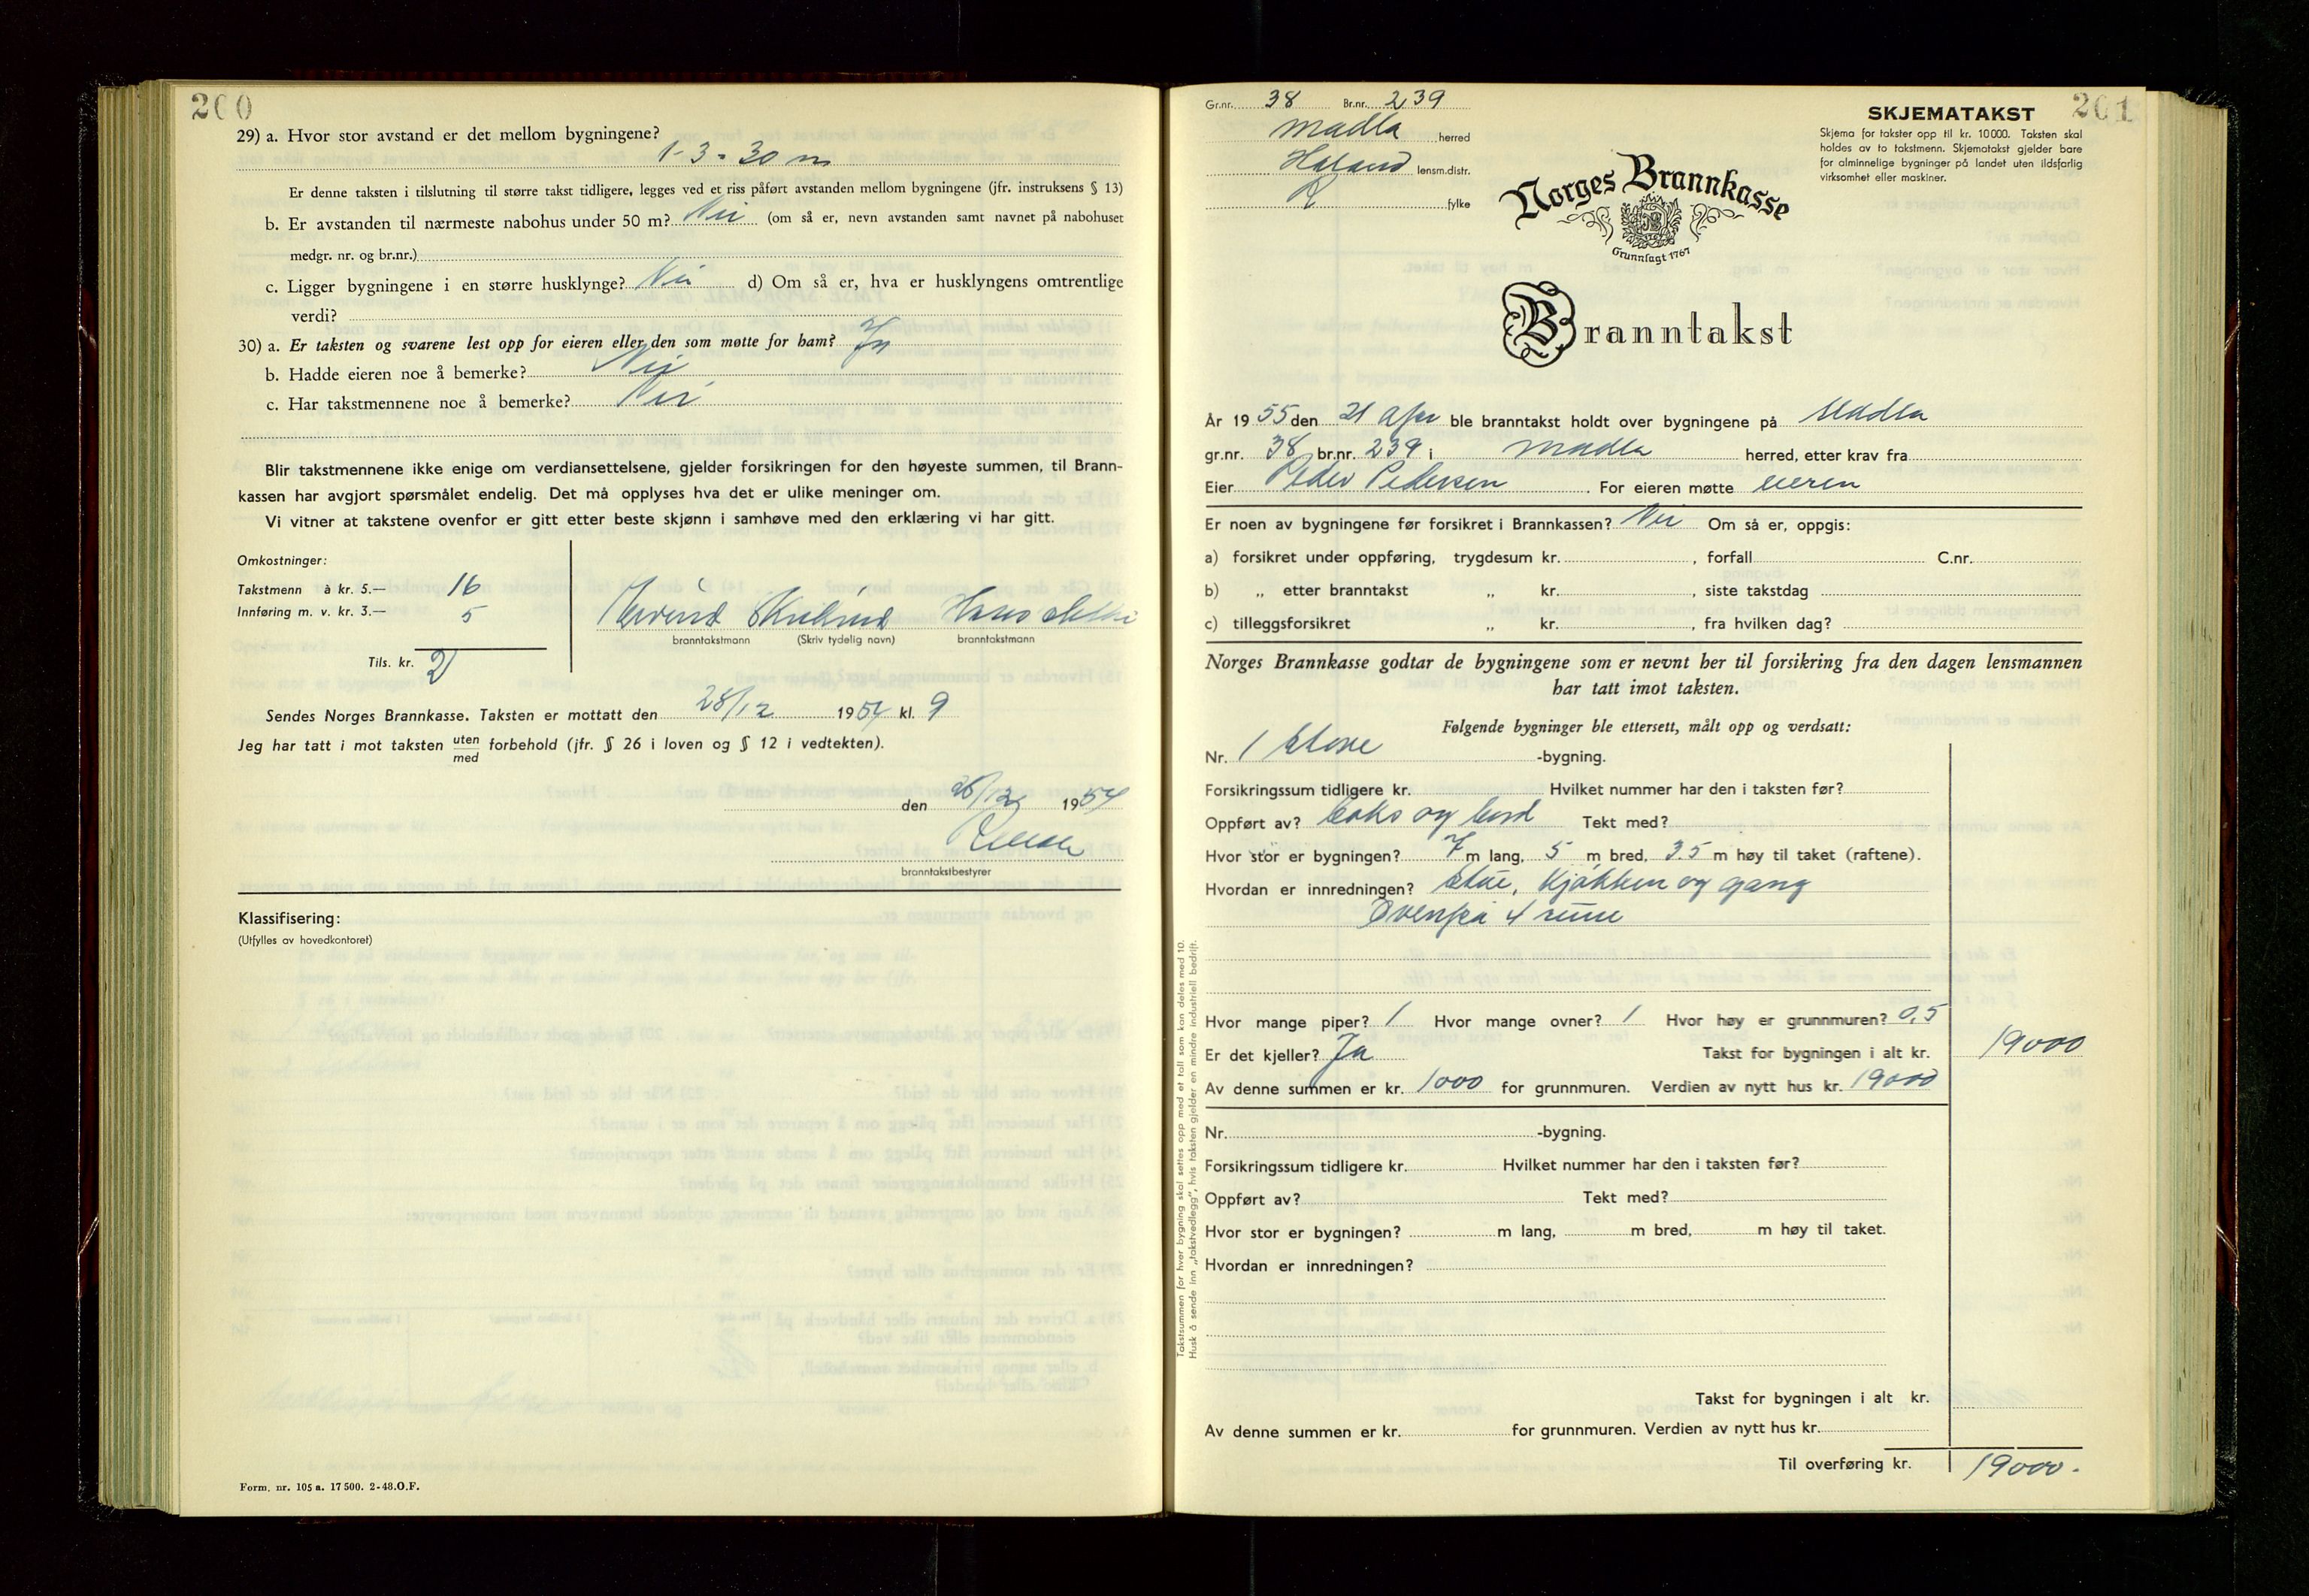 200
29) a. Hvor stor avstand er det mellom bygningene?
1-3 = 30 m
Er denne taksten i tilslutning til større takst tidligere, legges ved et riss påført avstanden mellom bygningene (jfr. instruksens § 13)
b. Er avstanden til nærmeste nabohus under 50 m? Nei (om så er, nevn avstanden samt navnet på nabohuset
medgr. nr. og br.nr.)
c. Ligger bygningene i en større husklynge? Nei d) Om så er, hva er husklyngens omtrentlige
verdi?
30) a. Er taksten og svarene lest opp for eieren eller den som møtte for ham? Ja
b. Hadde eieren noe å bemerke? Nei
c. Har takstmennene noe å bemerke? Nei
Blir takstmennene ikke enige om verdiansettelsene, gjelder forsikringen for den høyeste summen, til Brann-
kassen har avgjort spørsmålet endelig. Det må opplyses hva det er ulike meninger om.
Vi vitner at takstene ovenfor er gitt etter beste skjønn i samhøve med den erklæring vi har gitt.
Omkostninger:
Takstmenn à kr. 5.— 16
Innføring m. v. kr. 3.— 5
Tils. kr. 21
branntakstmann (Skriv tydelig navn) branntakstmann
Sendes Norges Brannkasse. Taksten er mottatt den 28/12 1954 kl. 9
Jeg har tatt i mot taksten uten
med forbehold (jfr. § 26 i loven og § 12 i vedtekten).
den 28/12 1954
branntakstbestyrer
Klassifisering:
(Utfylles av hovedkontoret)
Form. nr. 105 a. 17 500. 2-48.O.F.
201
Gr.nr. 38 Br.nr. 239
Madla herred
Haland lensm.distr.
R fylke
SKJEMATAKST
Skjema for takster opp til kr. 10 000. Taksten skal
holdes av to takstmenn. Skjematakst gjelder bare
for alminnelige bygninger på landet uten ildsfarlig
virksomhet eller maskiner.
Norges Brannkasse
Grunnlagt 1767
Branntakst
År 1955 den 21 apr ble branntakst holdt over bygningene på Madla
gr.nr. 38 br.nr. 239 i Madla herred, etter krav fra
Eier Peder Pedersen For eieren møtte eieren
Er noen av bygningene før forsikret i Brannkassen? Nei Om så er, oppgis:
a) forsikret under oppføring, trygdesum kr. , forfall C.nr.
b) „ etter branntakst „ kr. , siste takstdag
c) tilleggsforsikret „ kr. , fra hvilken dag?
Norges Brannkasse godtar de bygningene som er nevnt her til forsikring fra den dagen lensmannen
har tatt imot taksten.
Følgende bygninger ble ettersett, målt opp og verdsatt:
Nr. 1 -bygning.
Forsikringssum tidligere kr. Hvilket nummer har den i taksten før?
Oppført av? og bord Tekt med?
Hvor stor er bygningen? 7 m lang, 5 m bred, 3.5 m høy til taket (raftene).
Hvordan er innredningen? Stue, kjøkken og gang
Ovenpå 4 rum
Hvor mange piper? 1 Hvor mange ovner? 1 Hvor høy er grunnmuren? 0,5
Er det kjeller? Ja Takst for bygningen i alt kr. 19000
Av denne summen er kr. 1000 for grunnmuren. Verdien av nytt hus kr. 19000
Nr. -bygning.
Forsikringssum tidligere kr. Hvilket nummer har den i taksten før?
Oppført av? Tekt med?
Hvor stor er bygningen? m lang, m bred, m høy til taket.
Hvordan er innredningen?
Takst for bygningen i alt kr.
Av denne summen er kr. for grunnmuren. Verdien av nytt hus kr.
Til overføring kr. 19000.
Takstsummen for hver bygning skal settes opp med et tall som kan deles med 10.
Husk å sende inn „takstvedlegg", hvis taksten gjelder en mindre industriell bedrift.